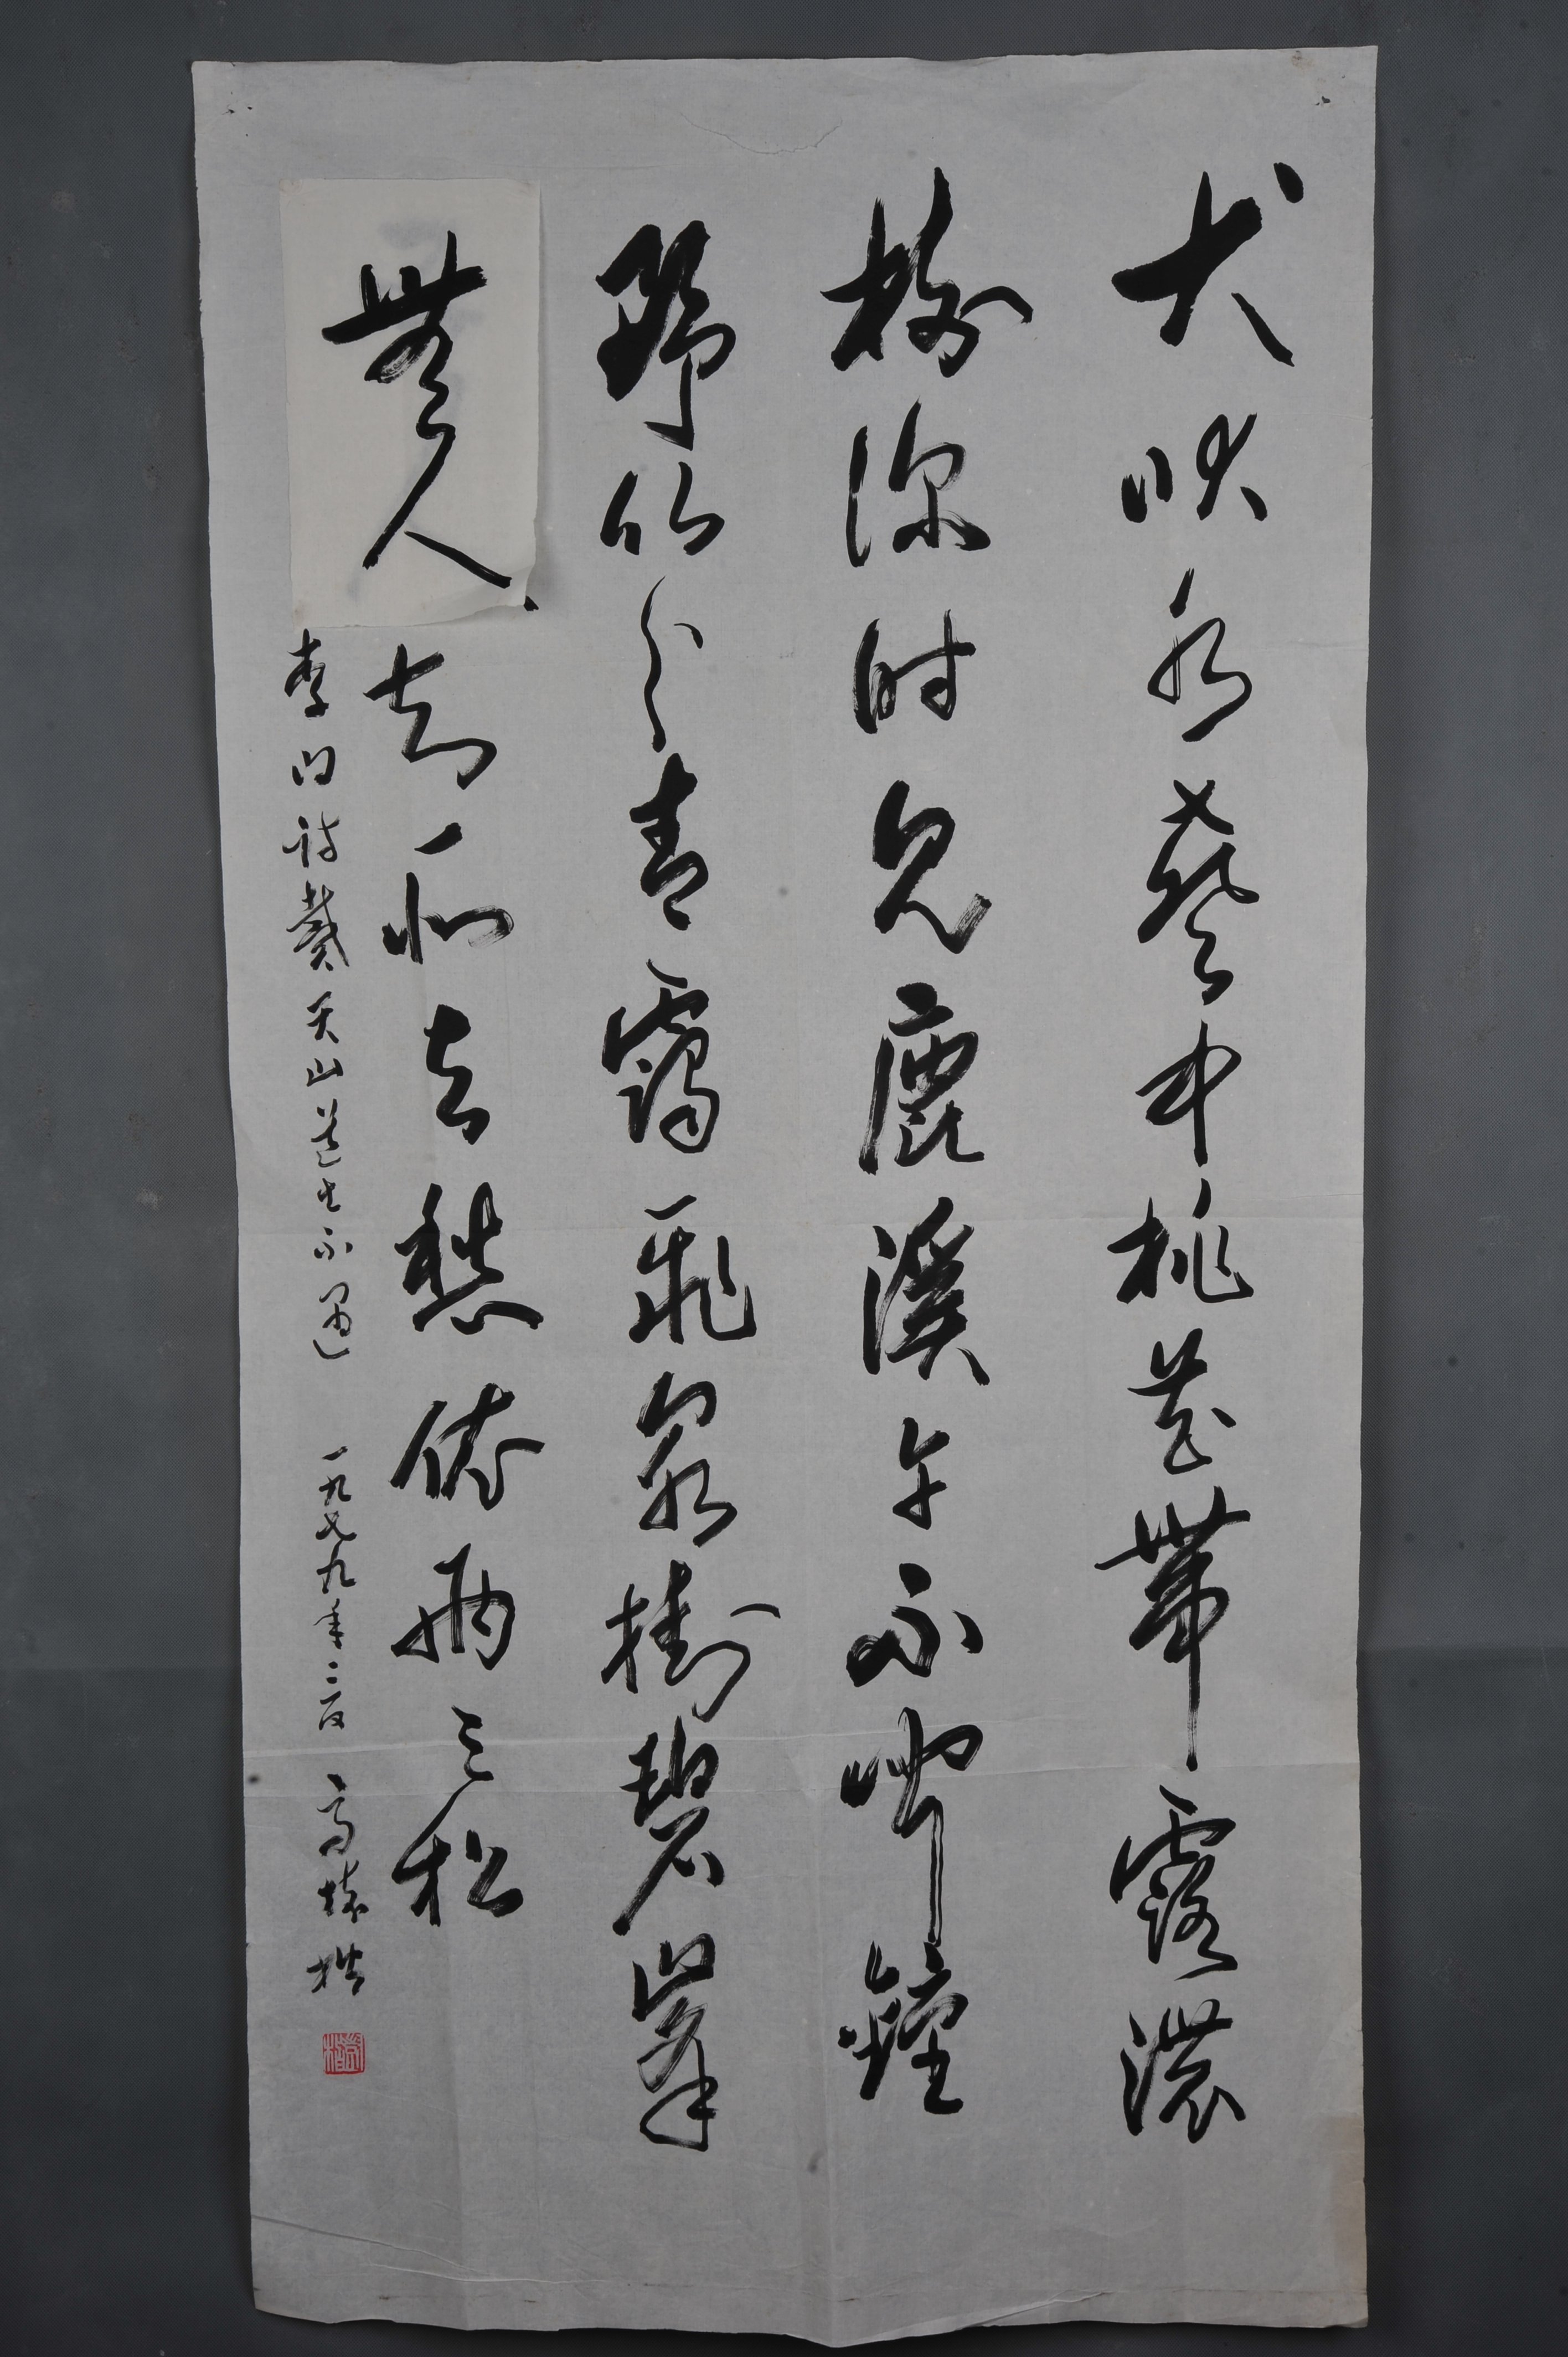 犬吠水聲中桃花帶露濃
樹深時見鹿溪午不聞鐘
野竹分青靄飛泉掛碧峯
無人知所去愁倚兩三松
李白訪戴天山道士不遇 一九七九年 高